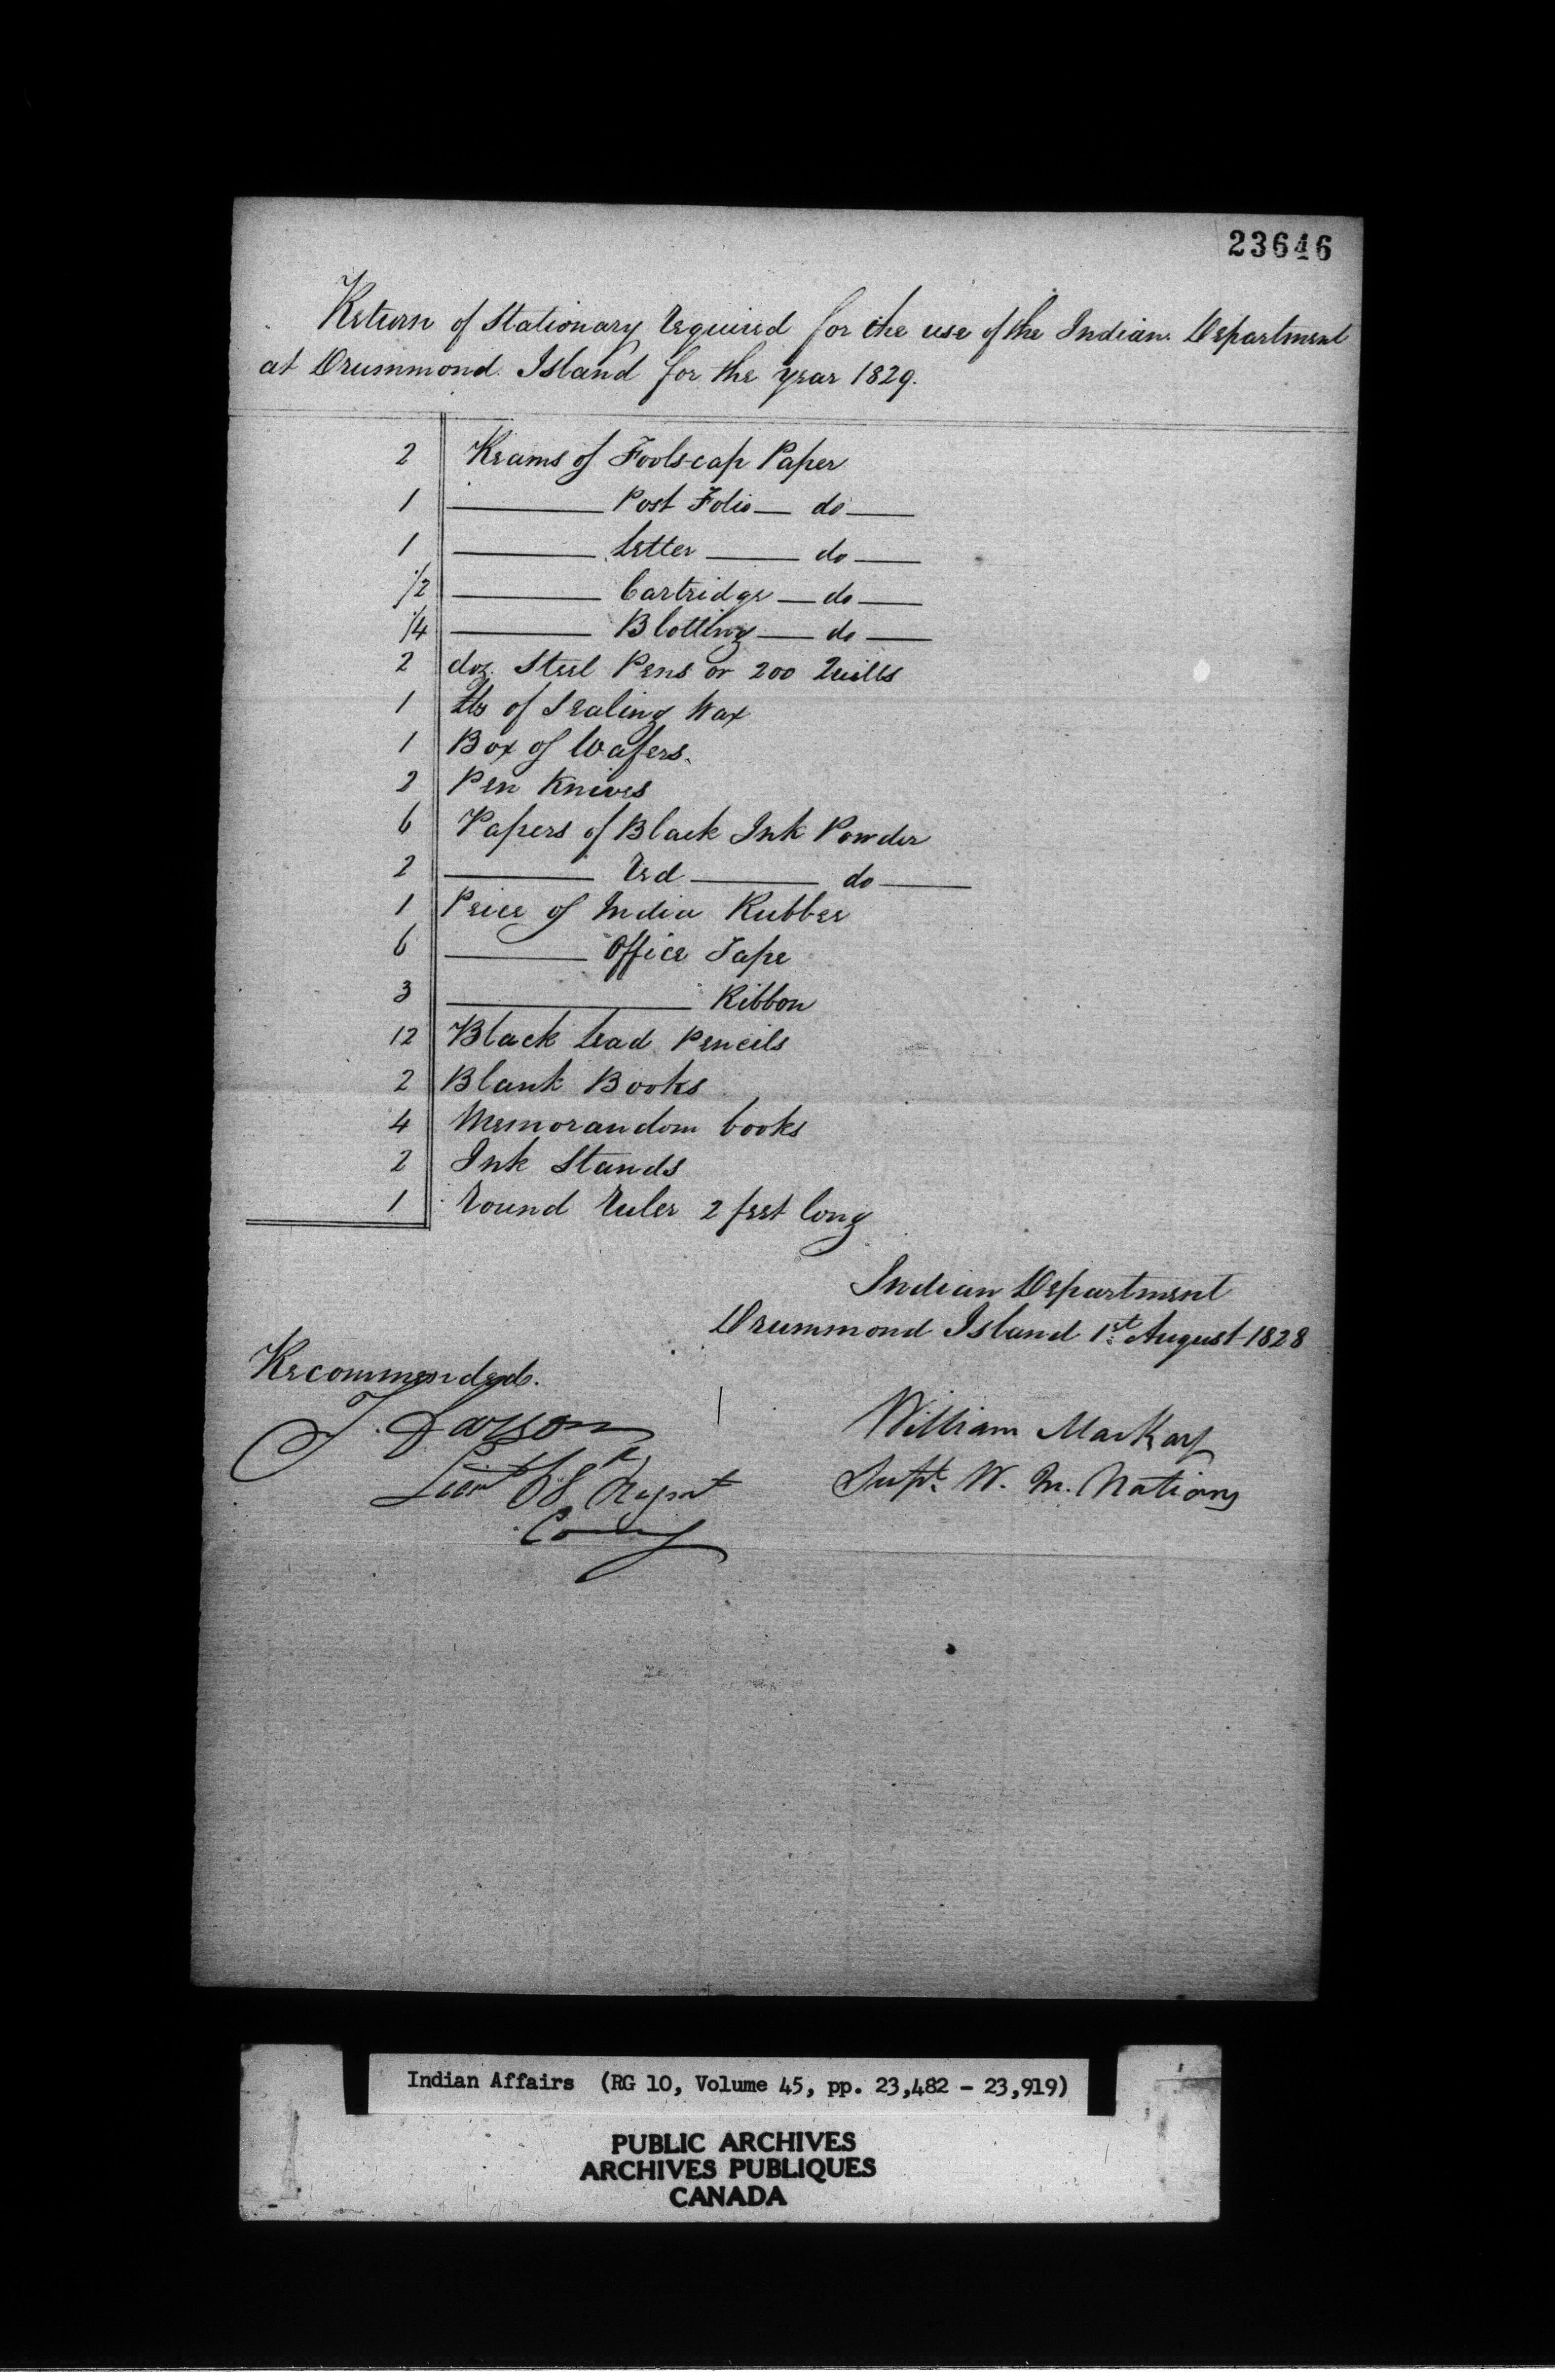 23646
Return of Stationary required for the use of the Indian Department
at Drummond Island for the year 1829.
2 Reams of Foolscap Paper
1 ——— Post Folio — do —
1 ——— Letter ——— do —
1/2 ——— Cartridge — do —
1/4 ——— Blotting — do —
2 doz. Steel Pens or 200 Quills
1 lb of Sealing Wax
1 Box of Wafers.
2 Pen Knives
6 Papers of Black Ink Powder
2 ——— red ——— do —
1 Peice of India Rubber
6 ——— Office Tape
3 ——— Ribbon
12 Black Lead Pencils
2 Blank Books
4 Memorandom books
2 Ink Stands
1 round ruler 2 feet long
Indian Department
Drummond Island 1st August 1828
Recommended.
T.
Lieut 68th Regmt
William MacKay
Supt. W. M. Nations
Indian Affairs (RG 10, Volume 45, pp. 23,482 - 23,919)
PUBLIC ARCHIVES
ARCHIVES PUBLIQUES
CANADA